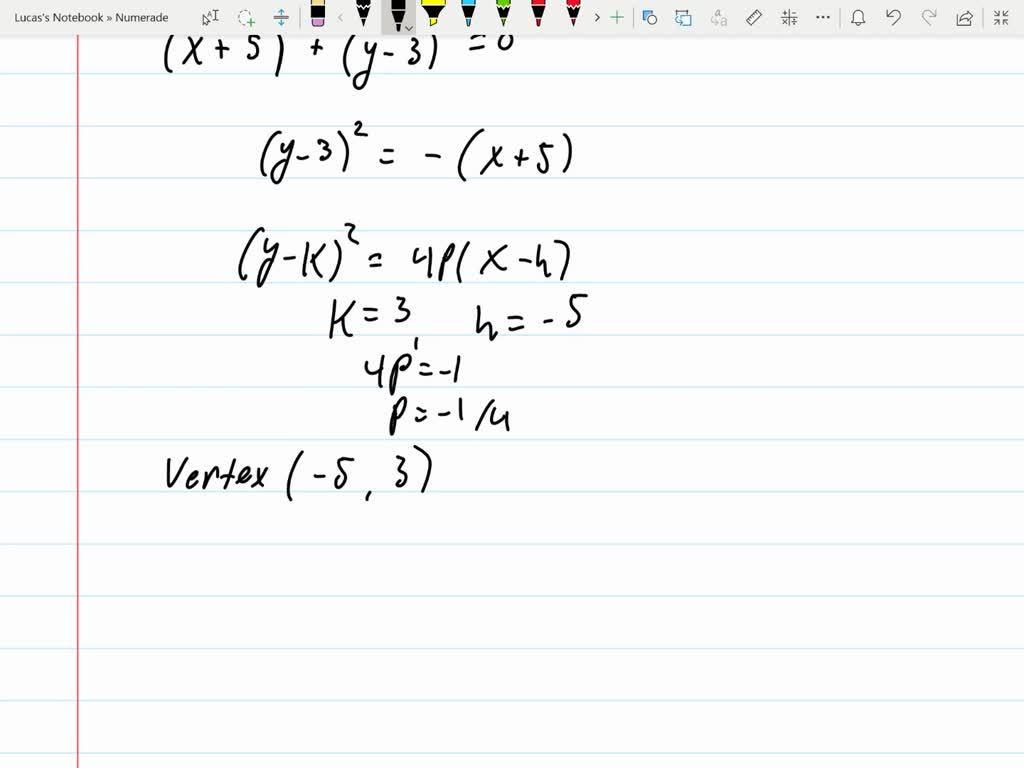 Lucas's Notebook » Numerade
(x + 5) + (y - 3) = 0
(y - 3)² = - (x + 5)
(y - K)² = 4P(x - h)
K = 3, h = - 5
4P = -1
P = -1/4
Vertex (-5, 3)